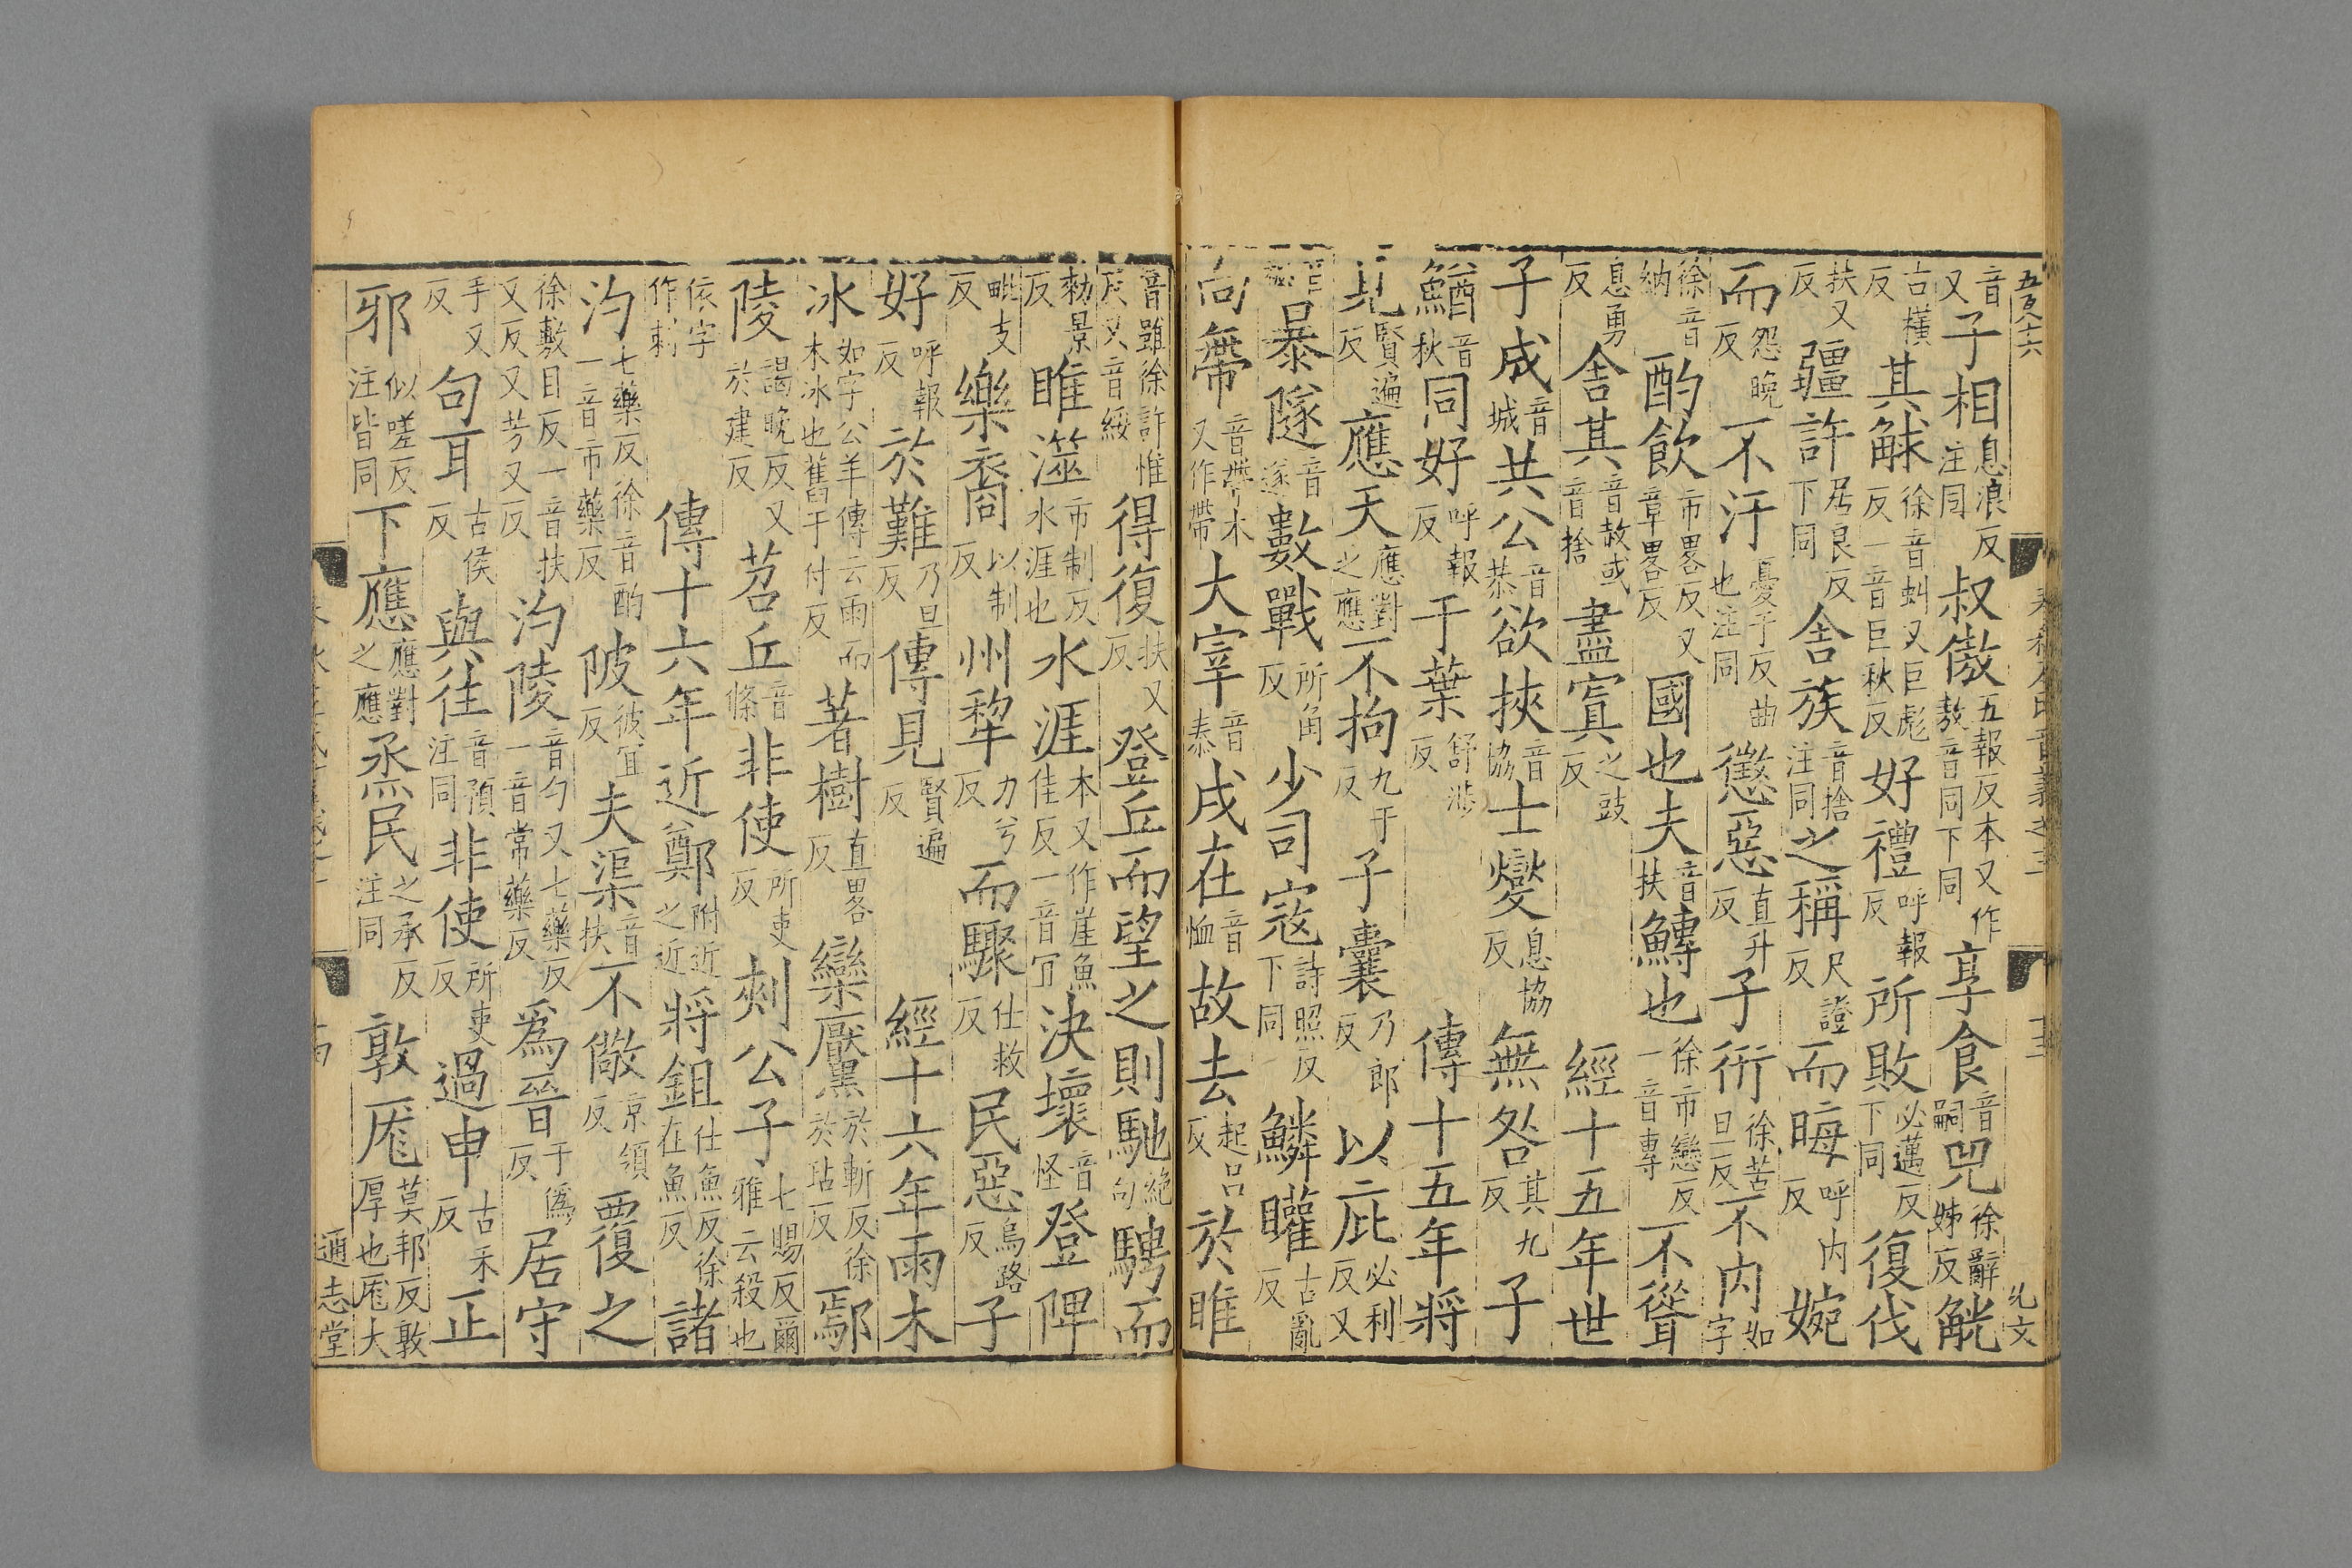 音又子相息浪反注同叔傲五報反本又作敖音同下同享食音嗣兕徐辭姊反觥
古橫反其觩徐音虯又巨彪反一音巨秋反好禮呼報反所敗必邁反下同復伐
扶又反疆許居良反下同舍族音捨注同之稱尺證反而晦呼內反婉
而怨晚反不汙憂于反曲也注同懲惡直升反子衎徐苦旦反不內如字
徐音納酌飲市畧反又章畧反國也夫音扶鱄也徐市戀反一音專不聳
息勇反舍其音赦或音捨盡寘之豉反經十五年世
子成音城共公音恭欲挾音協士燮息協反無咎其九反子
鰌音秋同好呼報反于葉舒涉反傳十五年將
見賢遍反應天應對之應不拘九于反子囊乃郎反以庇必利反又
音祕暴隧音遂數戰所角反少司寇詩照反下同鱗矔古亂反
向帶音帶本又作帶大宰音泰戌在音恤故去起呂反於睢
音雖徐許惟反又音綏得復扶又反登丘而望之則馳絕句騁而
勑景反睢澨市制反水涯也水涯本又作崖魚佳反一音宜決壞音怪登陴
毗支反樂裔以制反州犂力兮反而驟仕救反民惡烏路反子
好呼報反於難乃旦反傳見賢遍反經十六年雨木
冰如字公羊傳云雨而木冰也舊于付反著樹直畧反欒黶於斬反徐於玷反鄢
陵謁晚反又於建反苕丘音條非使所吏反刺公子七賜反爾雅云殺也
依字作刾傳十六年近鄭附近之近將鉏仕魚反徐在魚反諸
汋七藥反徐音酌一音市藥反陂彼宜反夫渠音扶不儆京領反覆之
徐敷目反一音扶又反又芳又反汋陵音勺又七藥反一音常藥反爲晉于僞反居守
手又反句耳古侯反與往音預注同非使所吏反過申古禾反正
邪似嗟反注皆同下應應對之應烝民之承反注同敦厖莫邦反敦厚也厖大
通志堂